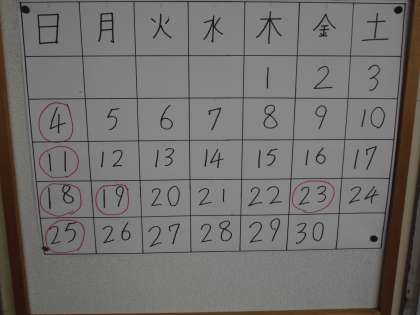 日 月 火 水 木 金 土
1 2 3
4 5 6 7 8 9 10
11 12 13 14 15 16 17
18 19 20 21 22 23 24
25 26 27 28 29 30